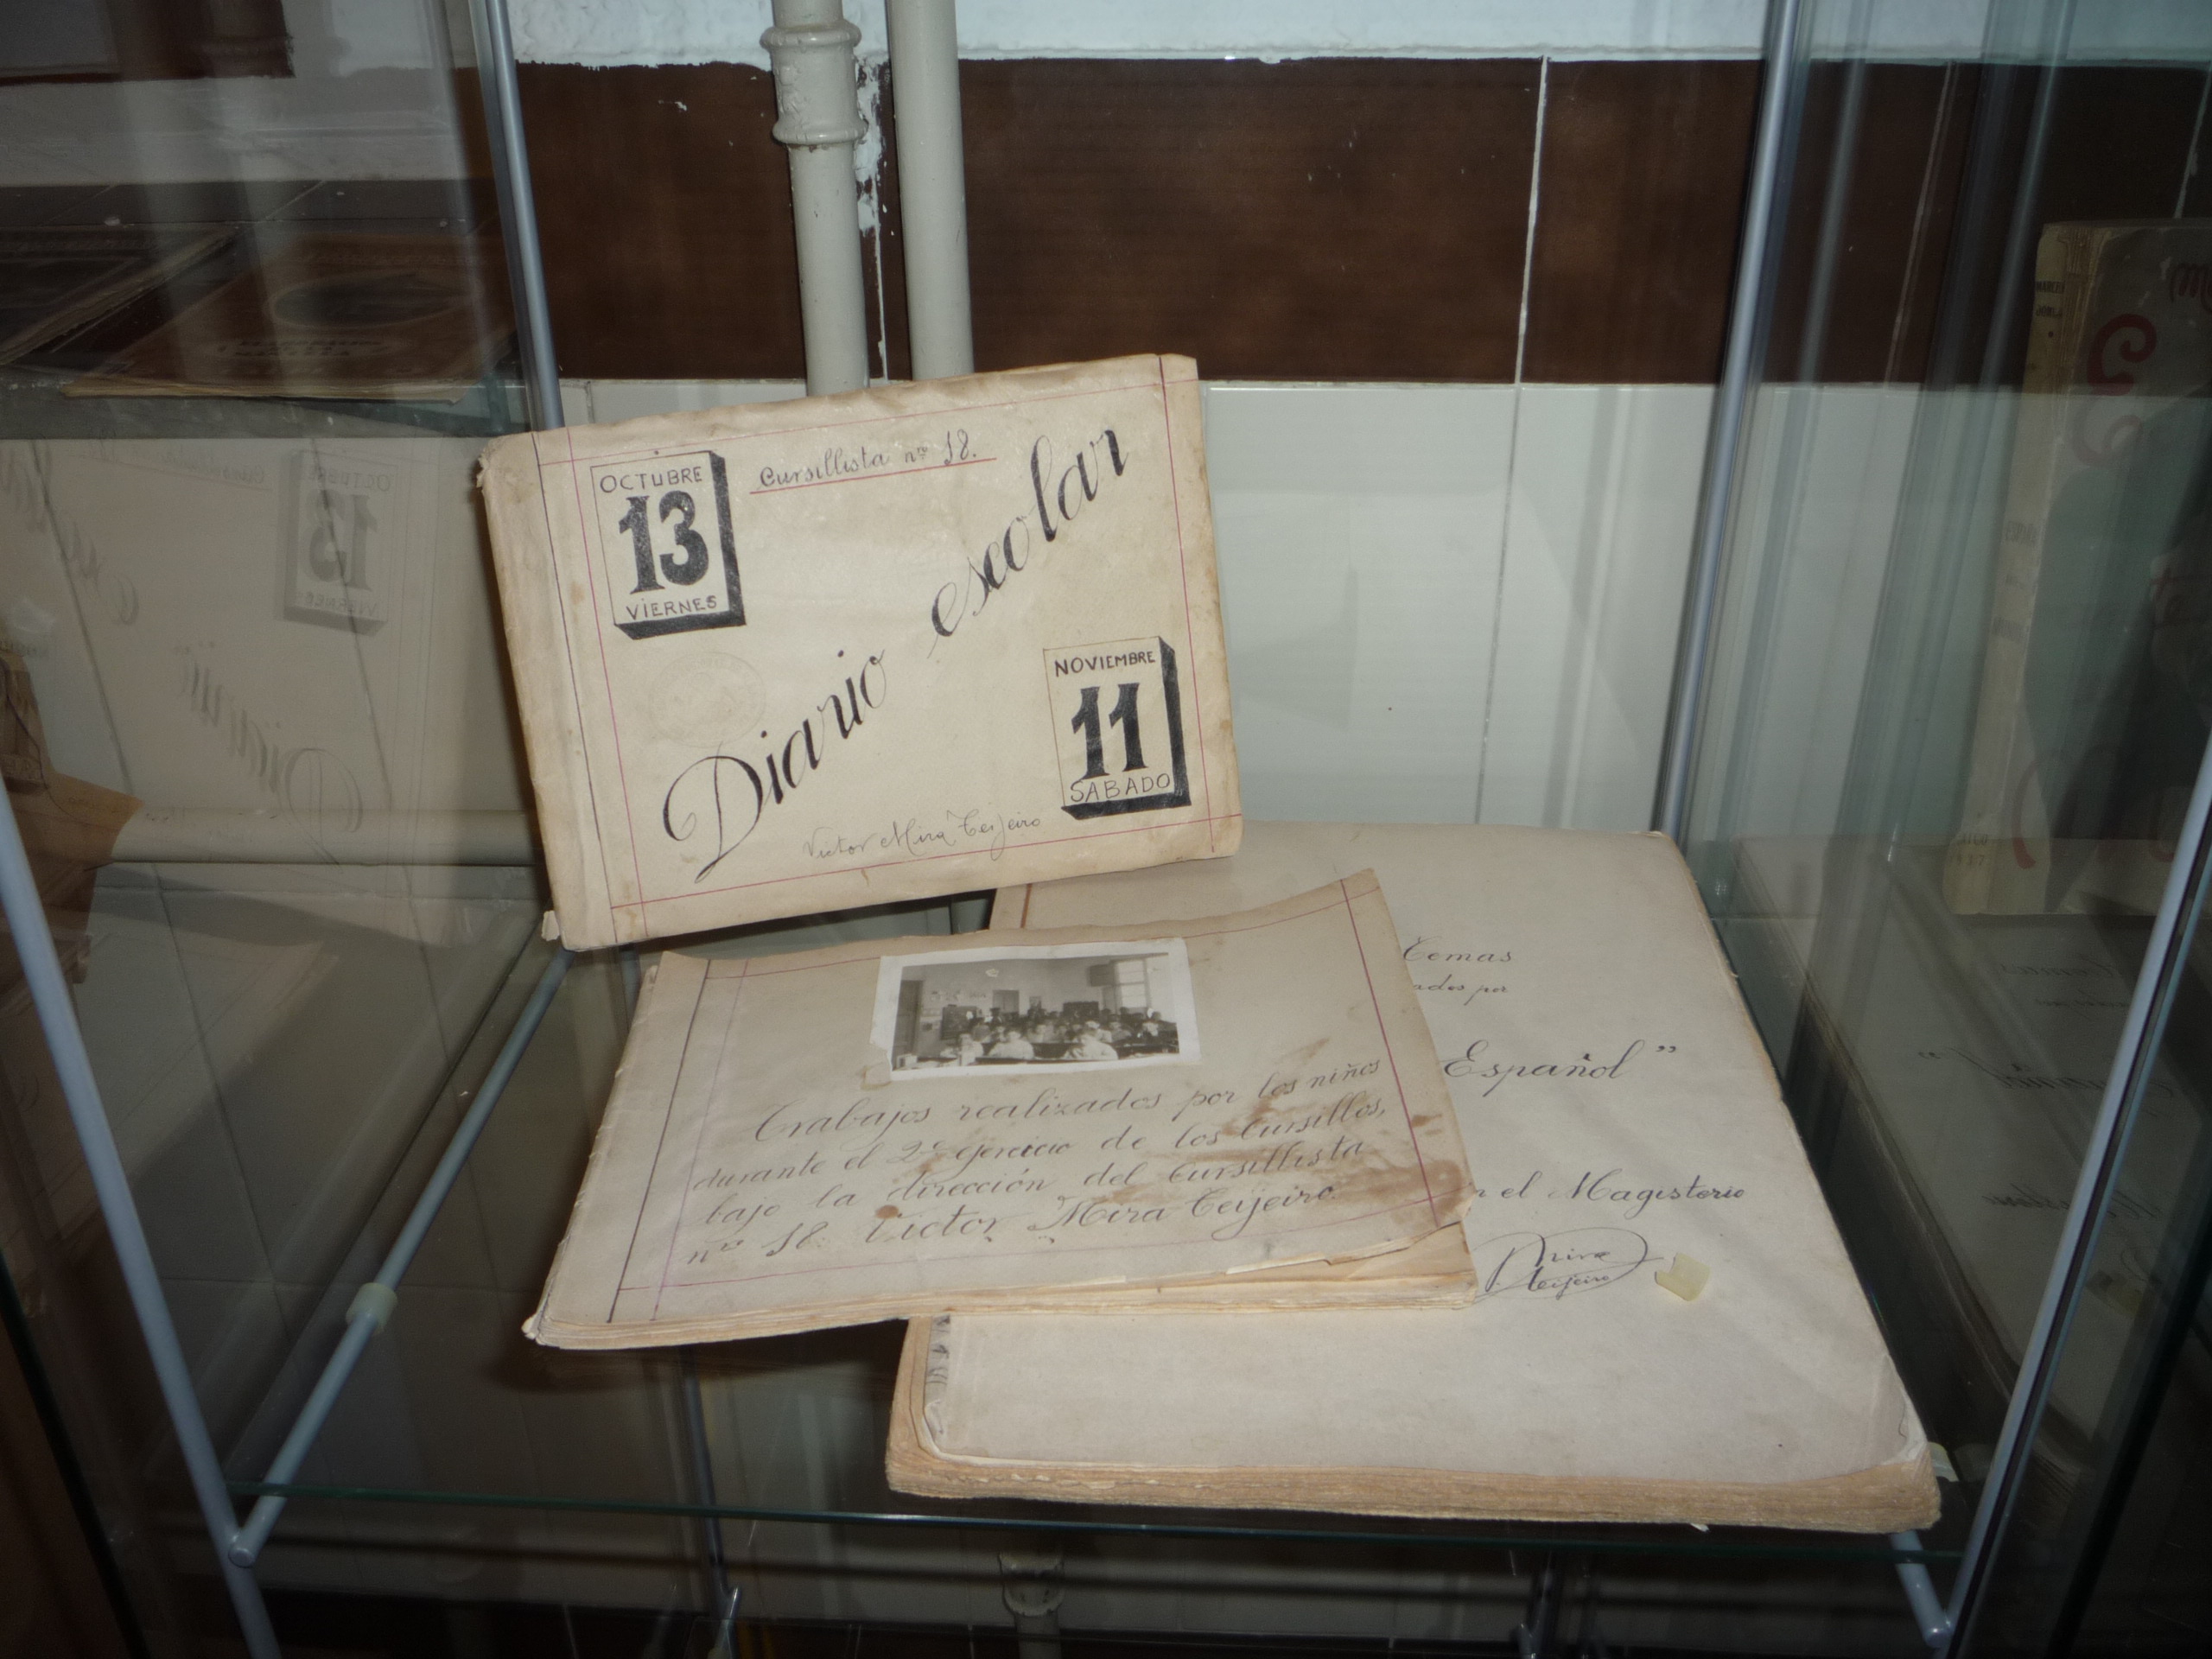 OCTUBRE
13
VIERNES
Cursillista nº 18.
Diario escolar
NOVIEMBRE
11
SABADO
Victor Mira Teijeiro
Trabajos realizados por los niños
durante el 2º ejercicio de los Cursillos,
bajo la dirección del Cursillista
nº 18. Victor Mira Teijeiro.
Temas
ados por
Español”
el Magisterio
Mira
Teijeiro